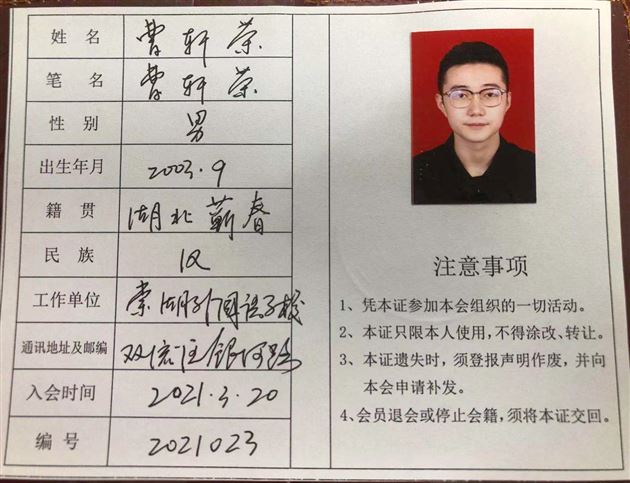 姓 名 曹轩荣
笔 名 曹轩荣
性 别 男
出生年月 2003.9
籍 贯 湖北蕲春
民 族 汉
工作单位
通讯地址及邮编 银河路
入会时间 2021.3.20
编 号 2021023
注意事项
1、凭本证参加本会组织的一切活动。
2、本证只限本人使用,不得涂改、转让。
3、本证遗失时,须登报声明作废,并向
本会申请补发。
4、会员退会或停止会籍,须将本证交回。